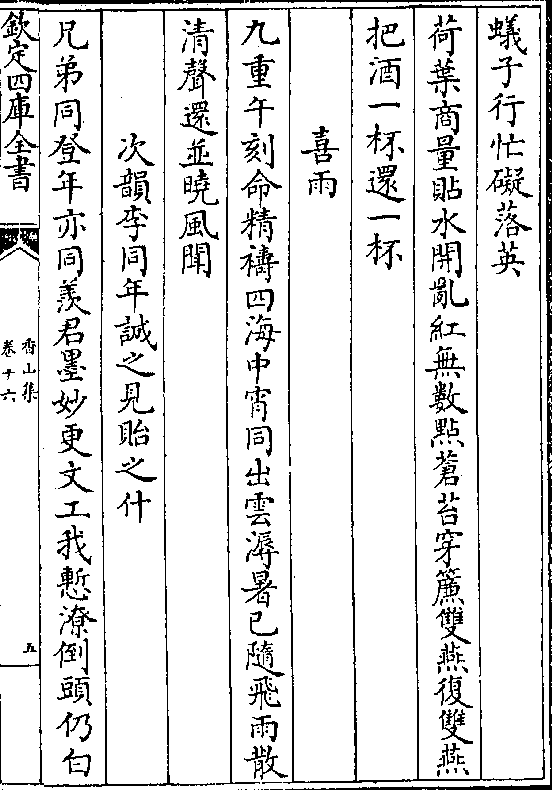 蟻子行忙礙落英
荷葉商量貼水開亂紅無數㸃蒼苔穿簾雙燕復雙燕
把酒一杯還一杯
喜雨
九重午刻命精禱四海中宵同出雲溽暑已隨飛雨散
清聲還並曉風聞
次韻李同年誠之見貽之什
兄弟同登年亦同羨君墨妙更文工我慙潦倒頭仍白
欽定四庫全書
香山集
卷十六
五